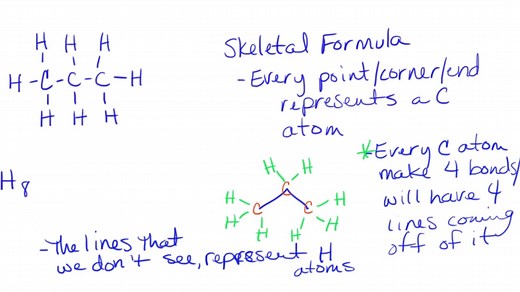 H H H
H-C-C-C-H
H H H
H8
Skeletal Formula
-Every point/corner/end
represents a C
atom
*-Every C atom
make 4 bonds/
will have 4
lines coming
off of it
H H
C
H C C H
H H H H
-The lines that
we don't see, represent H
atoms